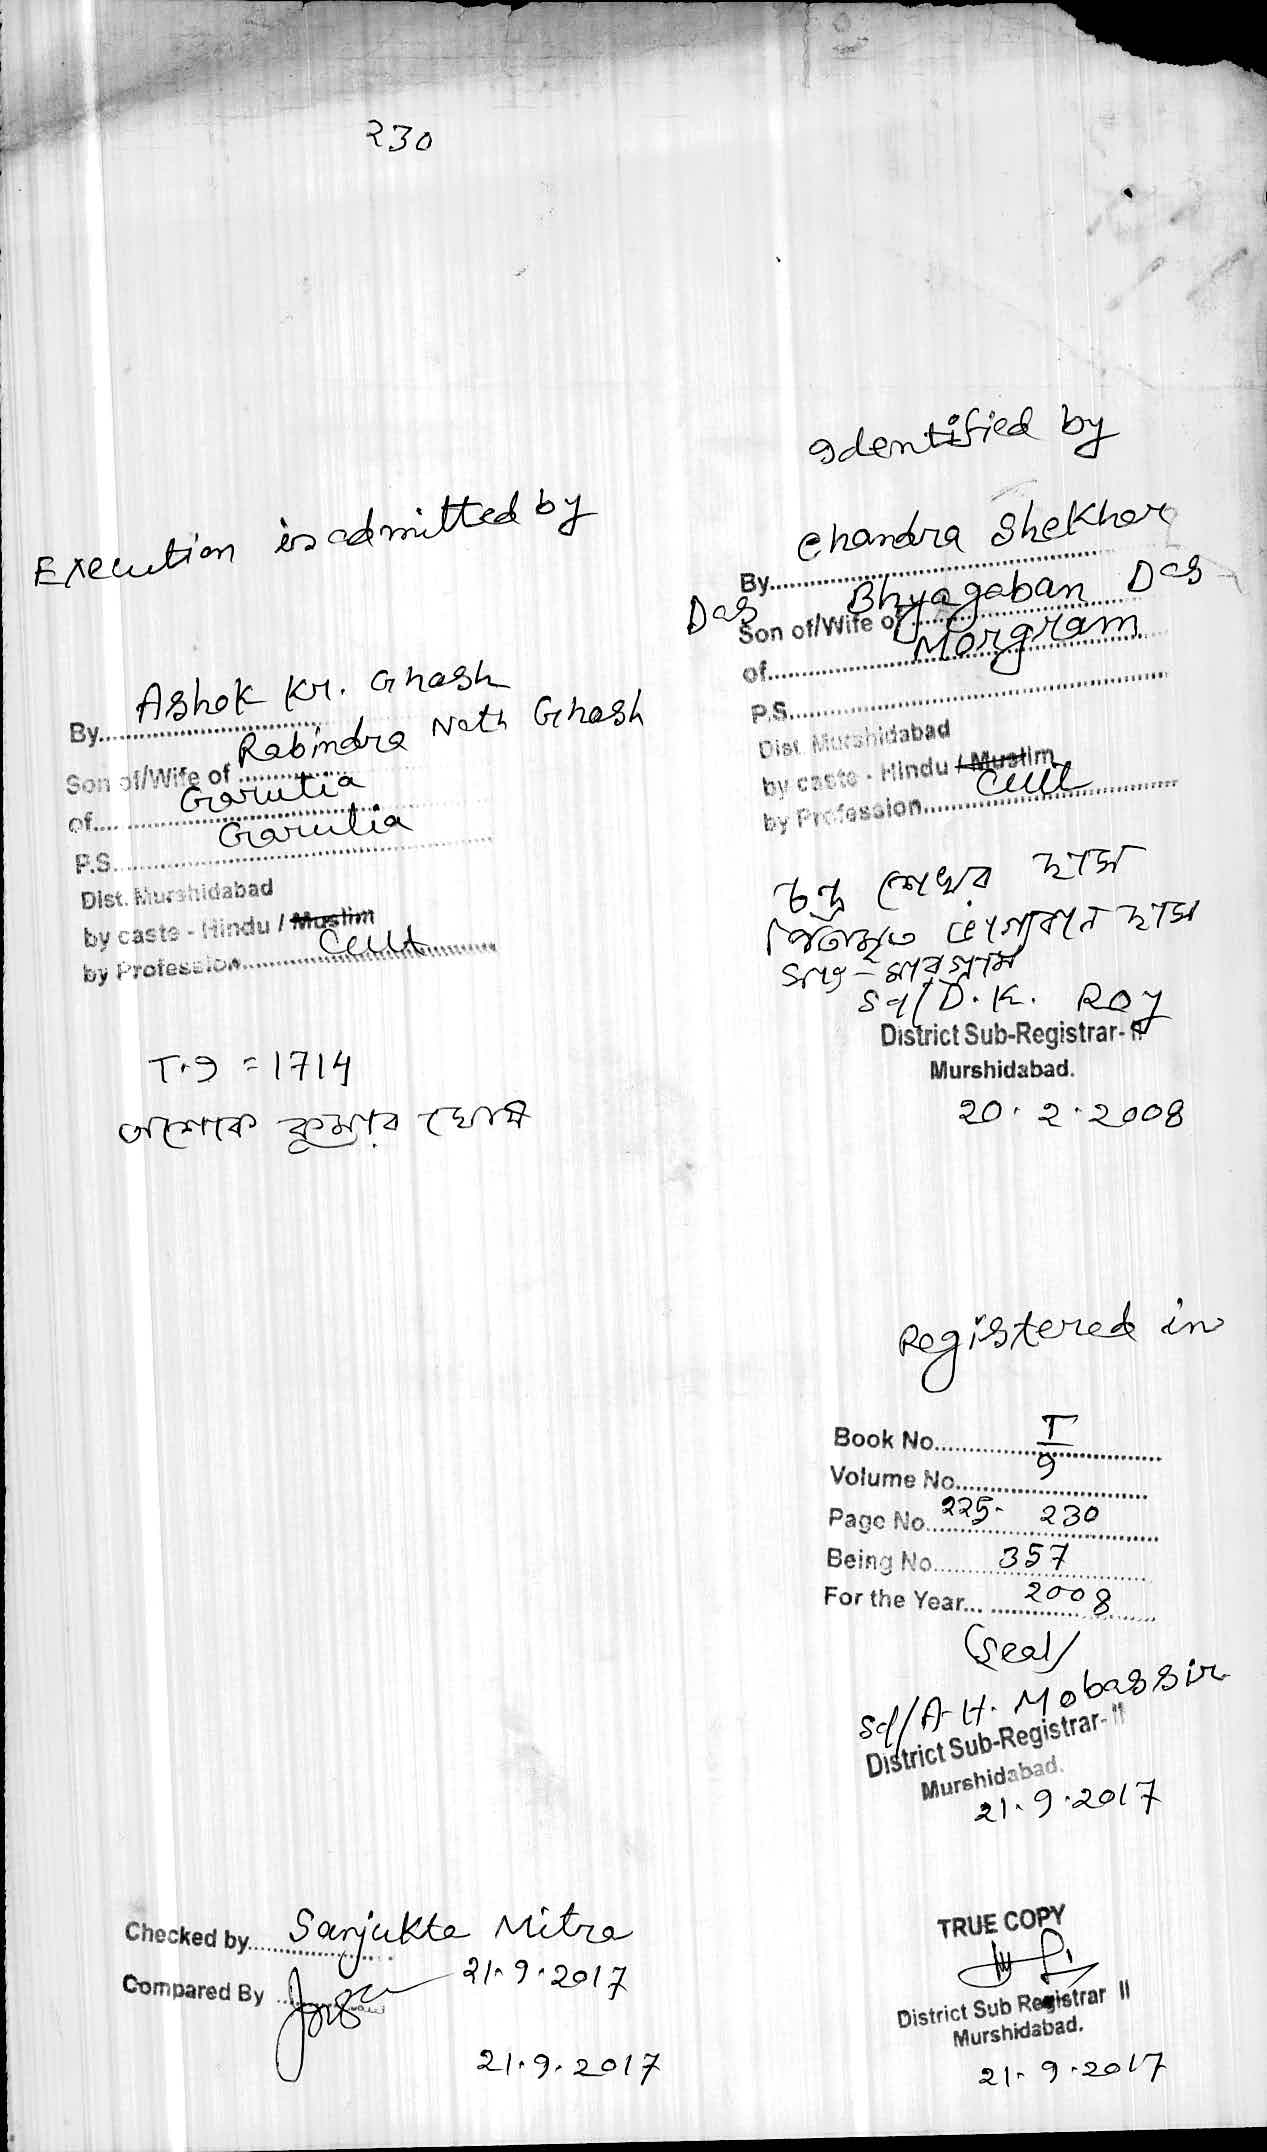 230
Execution is admitted by
By Ashok Kr. Ghosh
Son of/Wife of Rabindra Nath Ghosh
of Garutia
P.S. Garutia
Dist. Murshidabad
by caste - Hindu / Muslim
by Profession Cult
T.9 = 1714
অশোক কুমার ঘোষ
Identified by
By Chandra Shekhar
Das
Son of/Wife of Bhyagaban Das
of Morgram
P.S.
Dist. Murshidabad
by caste - Hindu / Muslim
by Profession Cult
চন্দ্র শেখর দাস
পিতা মৃত ভগ্যেবান দাস
সাং - মারগ্রাম
Sd/ D. K. Roy
District Sub-Registrar- II
Murshidabad.
20.2.2008
Registered in
Book No. I
Volume No. 9
Page No. 225- 230
Being No. 357
For the Year... 2008
(Seal)
Sd/ A. H. Mobassir
District Sub-Registrar- II
Murshidabad.
21.9.2017
Checked by Sanjukta Mitra
21.9.2017
Compared By
21.9.2017
TRUE COPY
District Sub Registrar II
Murshidabad.
21.9.2017